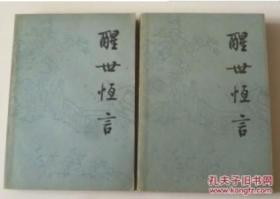 醒世恒言
醒世恒言
孔夫子旧书网